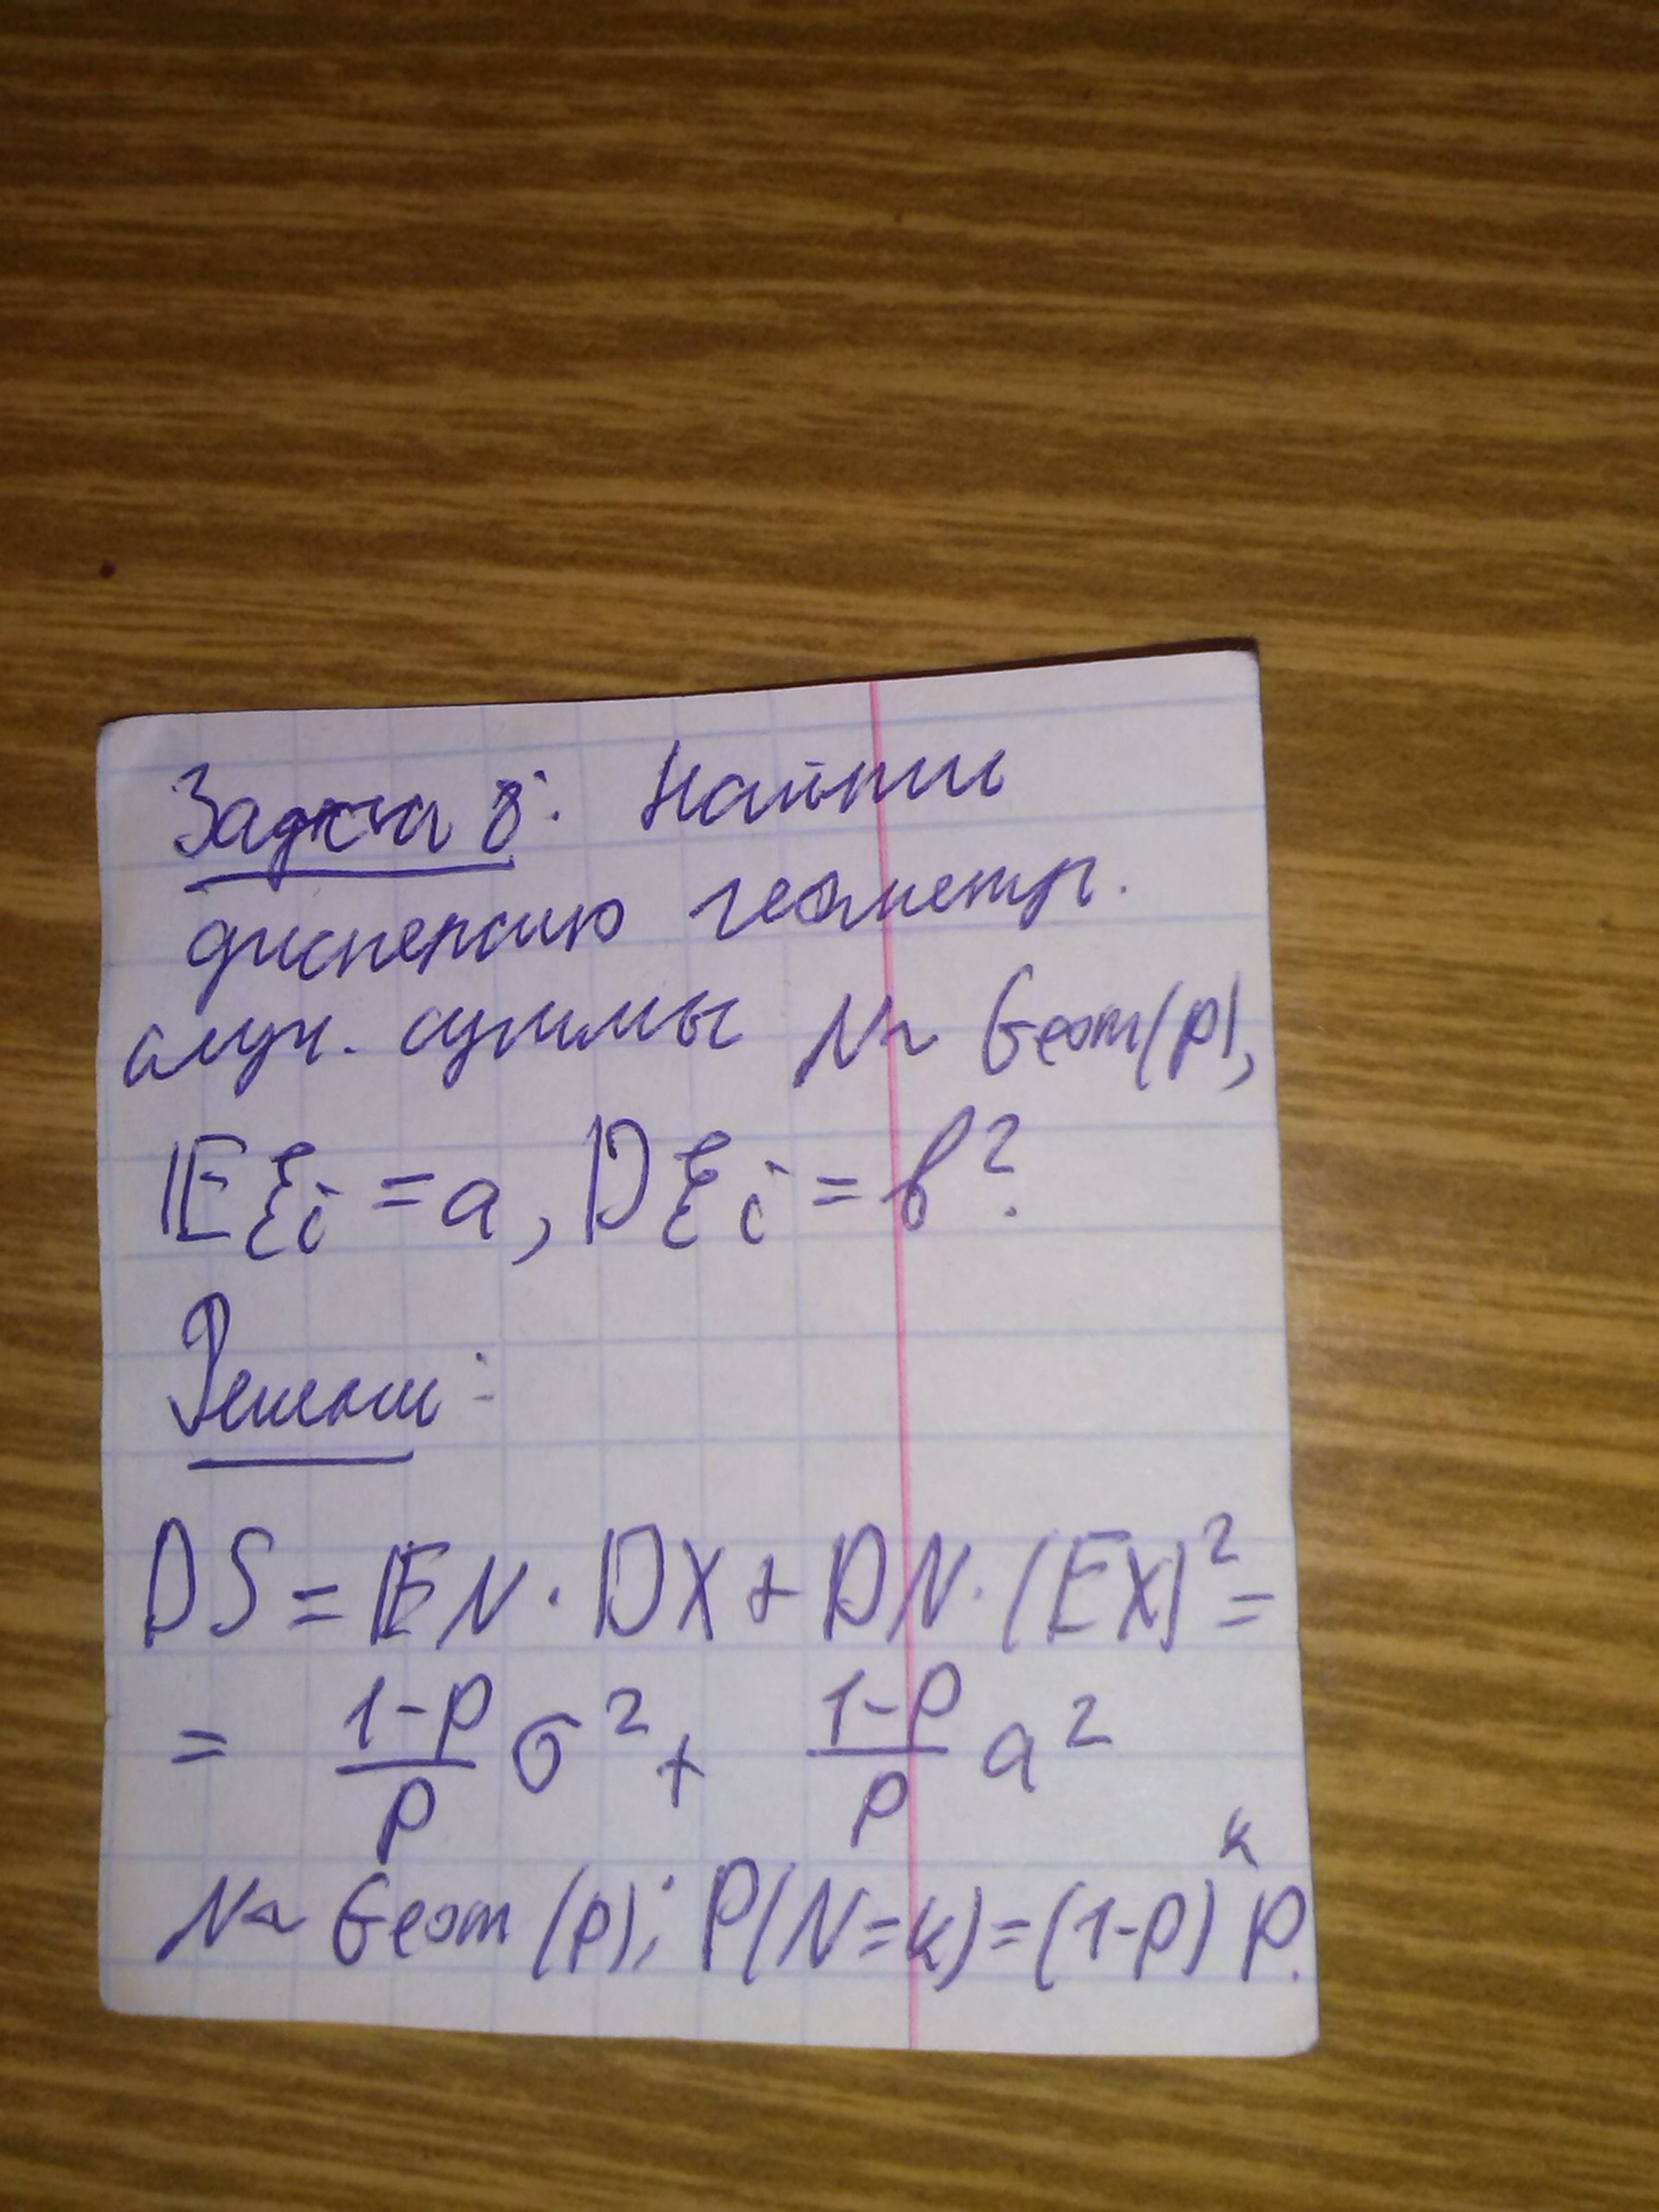 Задача 8: Найти
дисперсию геометр.
случ. суммы N~ Geom(p),
𝔼ξi = a, 𝔻ξi = b?
Решени:
𝔻S = 𝔼N · 𝔻X + 𝔻N · (EX)² =
= (1-p)/p σ² + (1-p)/p a²
N~ Geom (p); P(N=k)=(1-p)^k p.